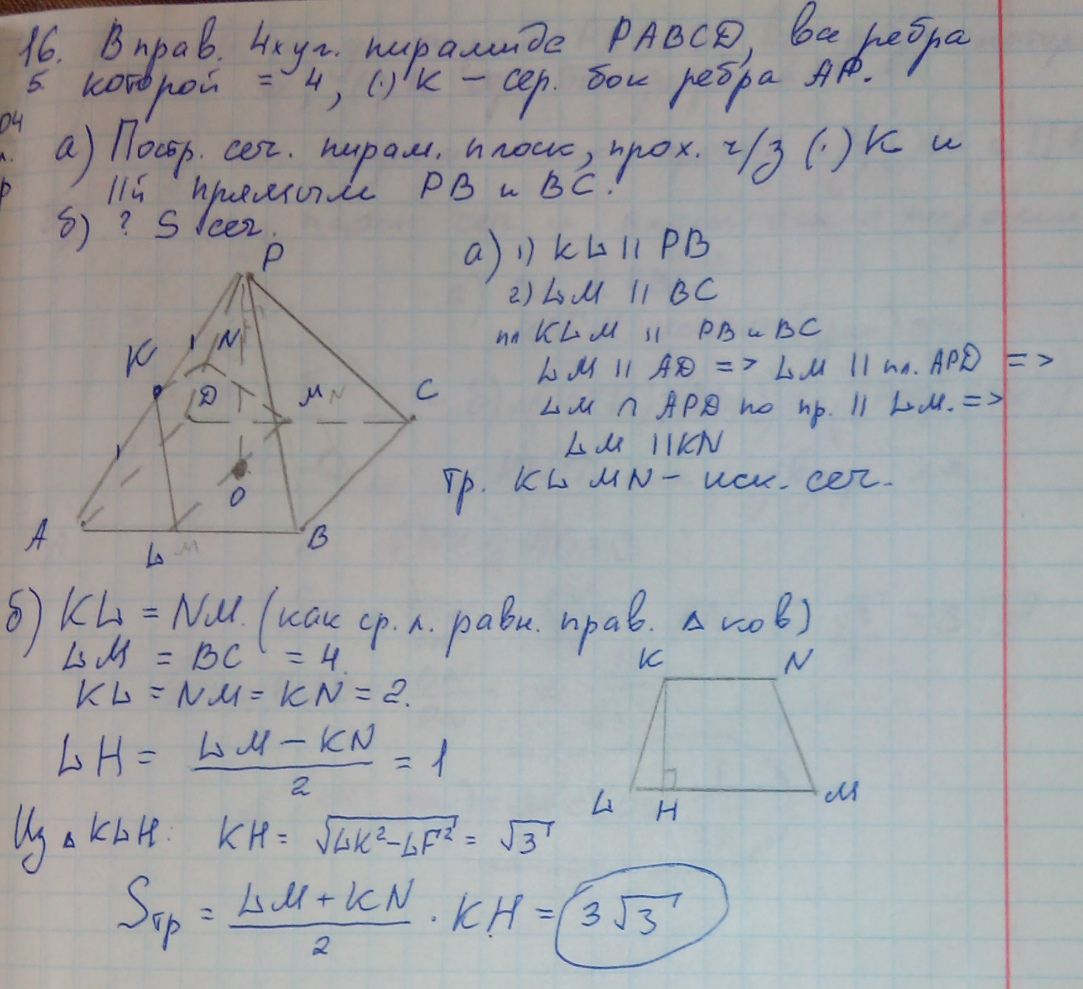 16. В прав. 4хуг. пирамиде PABCD, все ребра
5. которой = 4, (·) K – сер. бок ребра AP.
04
а) Постр. сеч. пирам. плоск, прох. ч/з (·) K и
р
||й прямым PB и BC.
б) ? S сеч.
P
K
N
D
M
N
C
O
A
L
M
B
а) 1) KL || PB
2) LM || BC
пл KLM || PB и BC
LM || AD => LM || пл. APD =>
LM ∩ APD по пр. || LM. =>
LM || KN
Тр. KLMN – иск. сеч.
б) KL = NM. (как ср. л. равн. прав. Δков)
LM = BC = 4.
KL = NM = KN = 2.
LH = (LM – KN)/2 = 1
K N
L H M
Из Δ KLH: KH = √(LK² – LF²) = √3
Sтр = (LM + KN)/2 · KH = 3√3